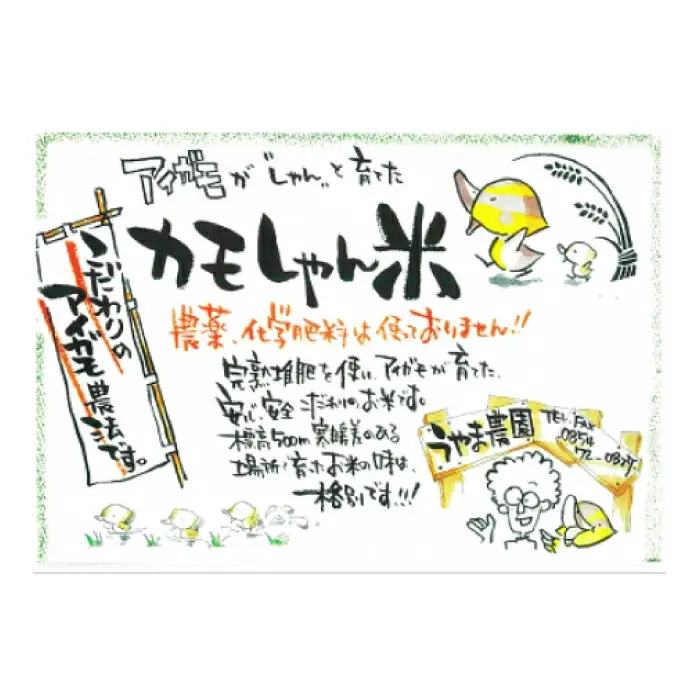 アイガモが"しゃん"と育てた
カモしゃん米
農薬、化学肥料は使っておりません!!
完熟堆肥を使い、アイガモが育てた、
安心、安全こだわりのお米です。
標高500m寒暖差のある
場所で育ったお米の味は、
一格別です!!!
こだわりの
アイガモ農法です。
うやま農園
TEL.FAX
0854